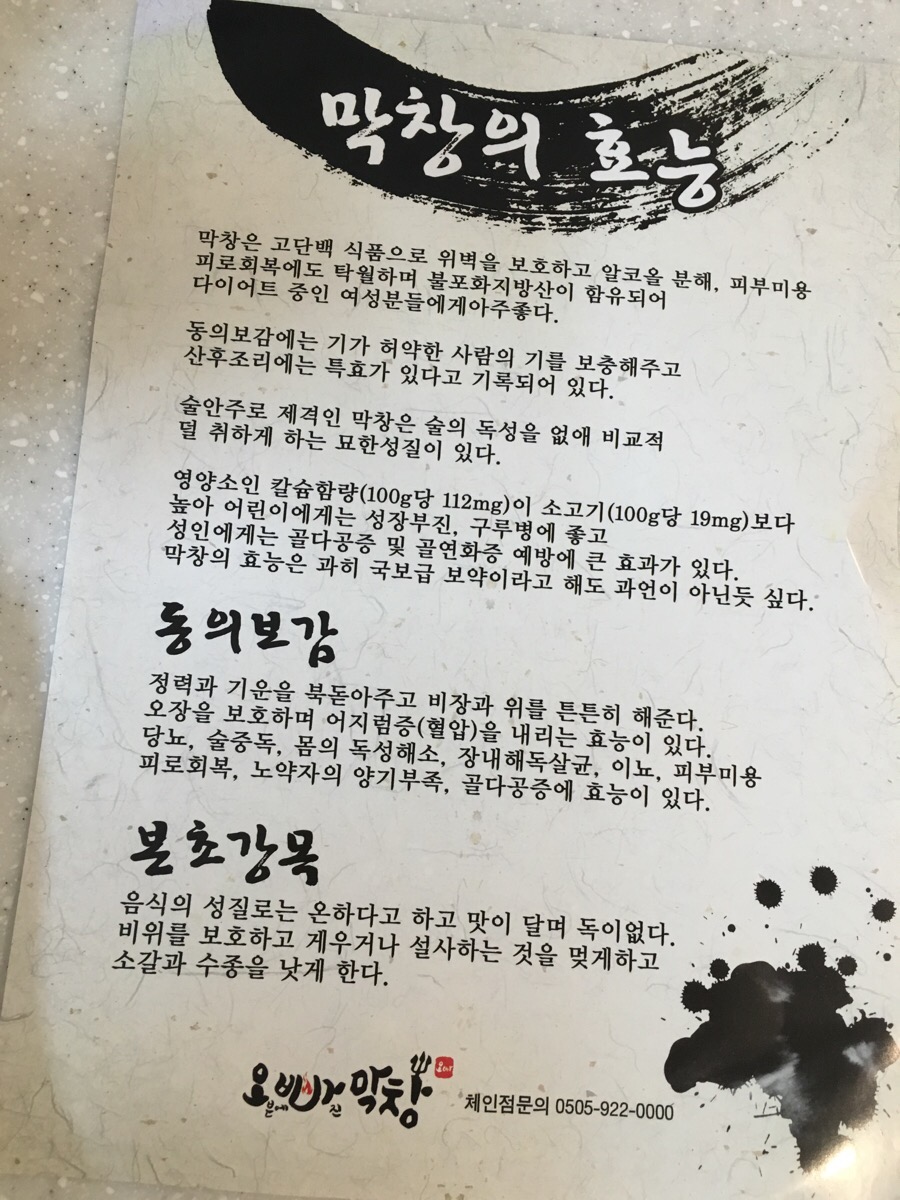 막창의 효능
막창은 고단백 식품으로 위벽을 보호하고 알코올 분해, 피부미용
피로회복에도 탁월하며 불포화지방산이 함유되어
다이어트 중인 여성분들에게아주좋다.
동의보감에는 기가 허약한 사람의 기를 보충해주고
산후조리에는 특효가 있다고 기록되어 있다.
술안주로 제격인 막창은 술의 독성을 없애 비교적
덜 취하게 하는 묘한성질이 있다.
영양소인 칼슘함량(100g당 112mg)이 소고기(100g당 19mg)보다
높아 어린이에게는 성장부진, 구루병에 좋고
성인에게는 골다공증 및 골연화증 예방에 큰 효과가 있다.
막창의 효능은 과히 국보급 보약이라고 해도 과언이 아닌듯 싶다.
동의보감
정력과 기운을 북돋아주고 비장과 위를 튼튼히 해준다.
오장을 보호하며 어지럼증(혈압)을 내리는 효능이 있다.
당뇨, 술중독, 몸의 독성해소, 장내해독살균, 이뇨, 피부미용
피로회복, 노약자의 양기부족, 골다공증에 효능이 있다.
본초강목
음식의 성질로는 온하다고 하고 맛이 달며 독이없다.
비위를 보호하고 게우거나 설사하는 것을 멎게하고
소갈과 수종을 낫게 한다.
오븐에 빠진 막창
체인점문의 0505-922-0000